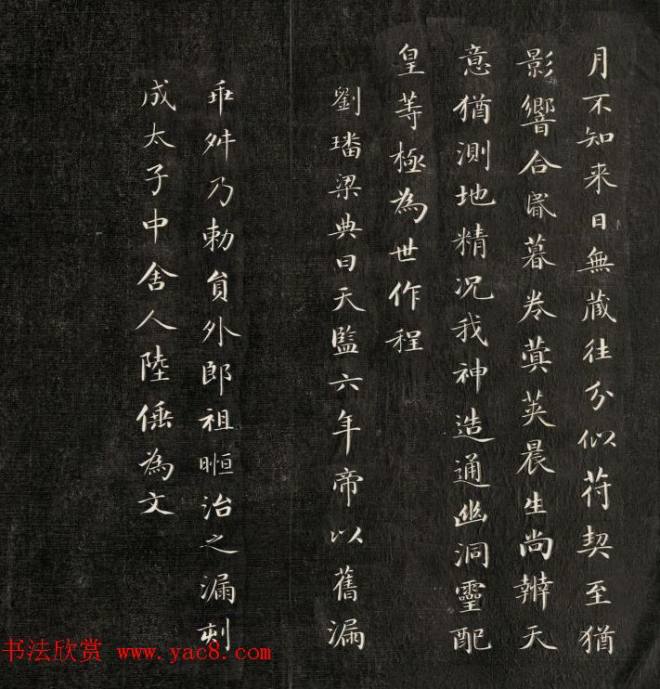 月不知來日無藏往分似符契至猶
影響合昬暮卷蓂莢晨生尚辨天
意猶測地精况我神造通幽洞靈配
皇等極為世作程
劉璠梁典曰天監六年帝以舊漏
乖舛乃勅員外郎祖暅治之漏刻
成太子中舍人陸倕為文
书法欣赏 www.yac8.com